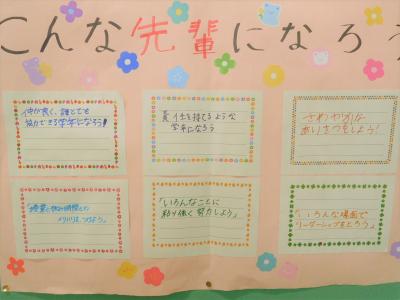 こんな先輩になろう
仲が良く、誰とでも
協力できる学年になろう!
責任を持てるような
学年になろう
さわやかな
あいさつをしよう!
「授業と休み時間との
メリハリをつけよう」
「いろんなことに
粘り強く努力しよう」
「いろんな場面で
リーダーシップをとろう」